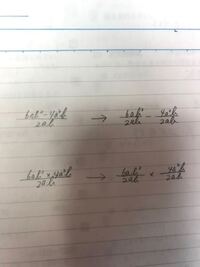 (6ab² - 4a²b)/2ab → 6ab²/2ab - 4a²b/2ab
(6ab² × 4a²b)/2ab → 6ab²/2ab × 4a²b/2ab